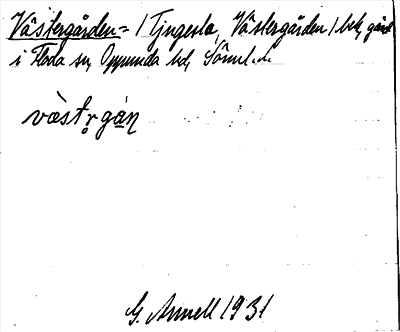 Västergården = / Tjugesta, Västergården / beb, gård
i Floda sn, Oppunda hd, Sörml.
västr̥gán
G. Annell 1931